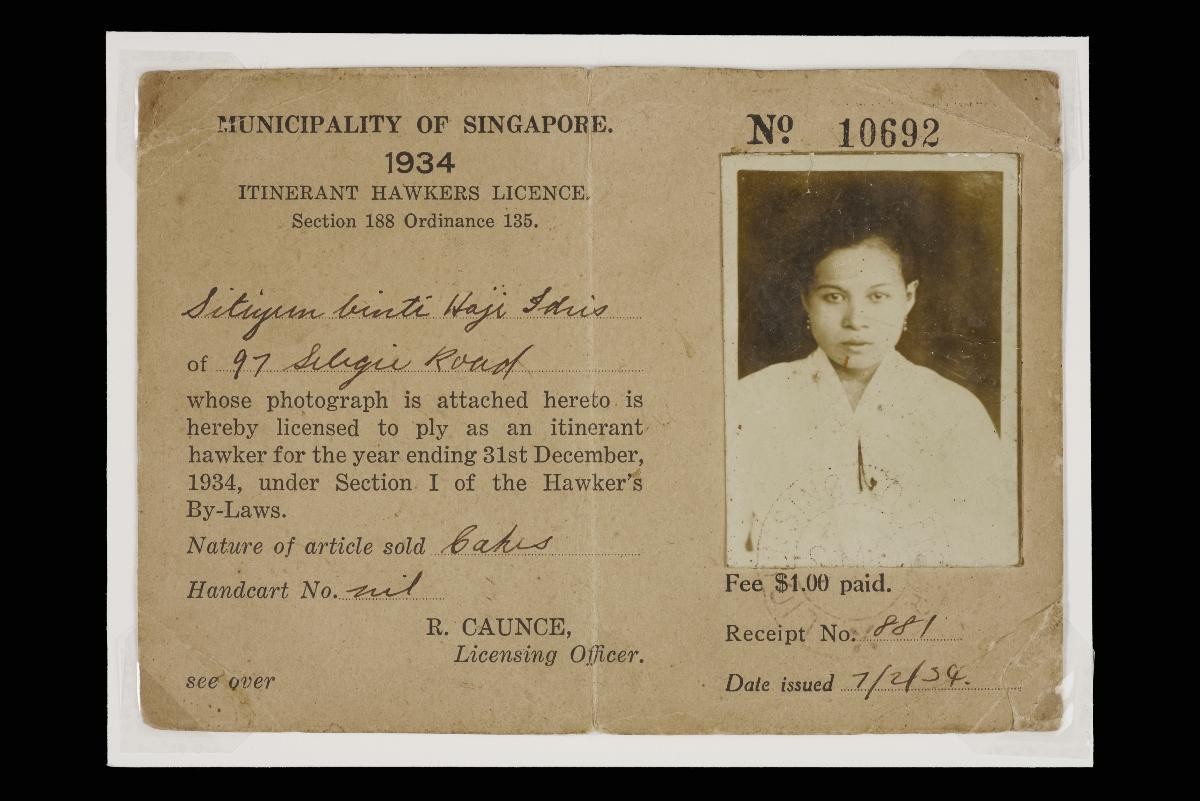 MUNICIPALITY OF SINGAPORE.
1934
ITINERANT HAWKERS LICENCE.
Section 188 Ordinance 135.
Sitiyum binti Haji Idris
of 97 Selegie Road
whose photograph is attached hereto is
hereby licensed to ply as an itinerant
hawker for the year ending 31st December,
1934, under Section I of the Hawker's
By-Laws.
Nature of article sold Cakes
Handcart No. nil
R. CAUNCE,
Licensing Officer.
see over
No. 10692
Fee $1.00 paid.
Receipt No. 881
Date issued 7/2/34.